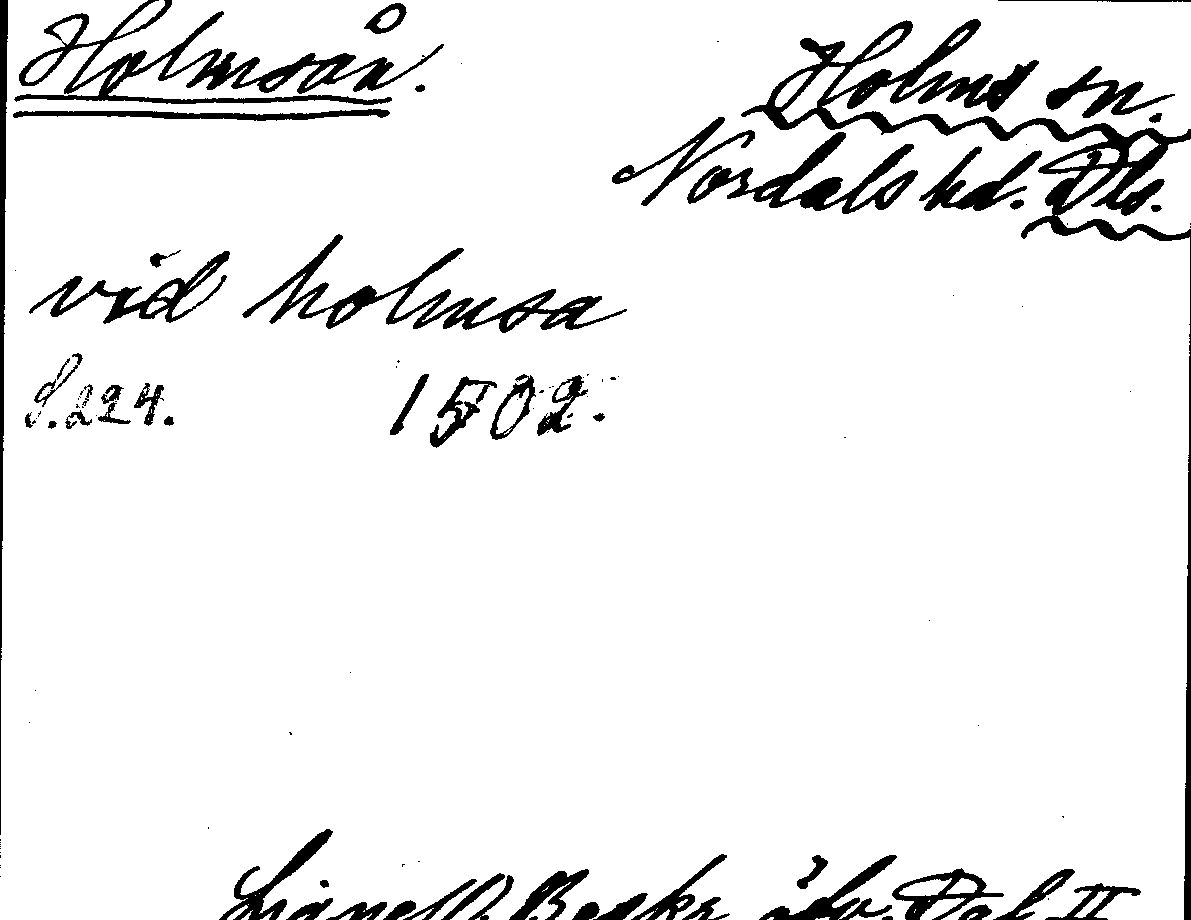 Holmsån.
Holms sn.
Nordals hd. Dls.
vid holmsa
S. 224. 1502.
Lignell. Beskr. öfv. Dal II